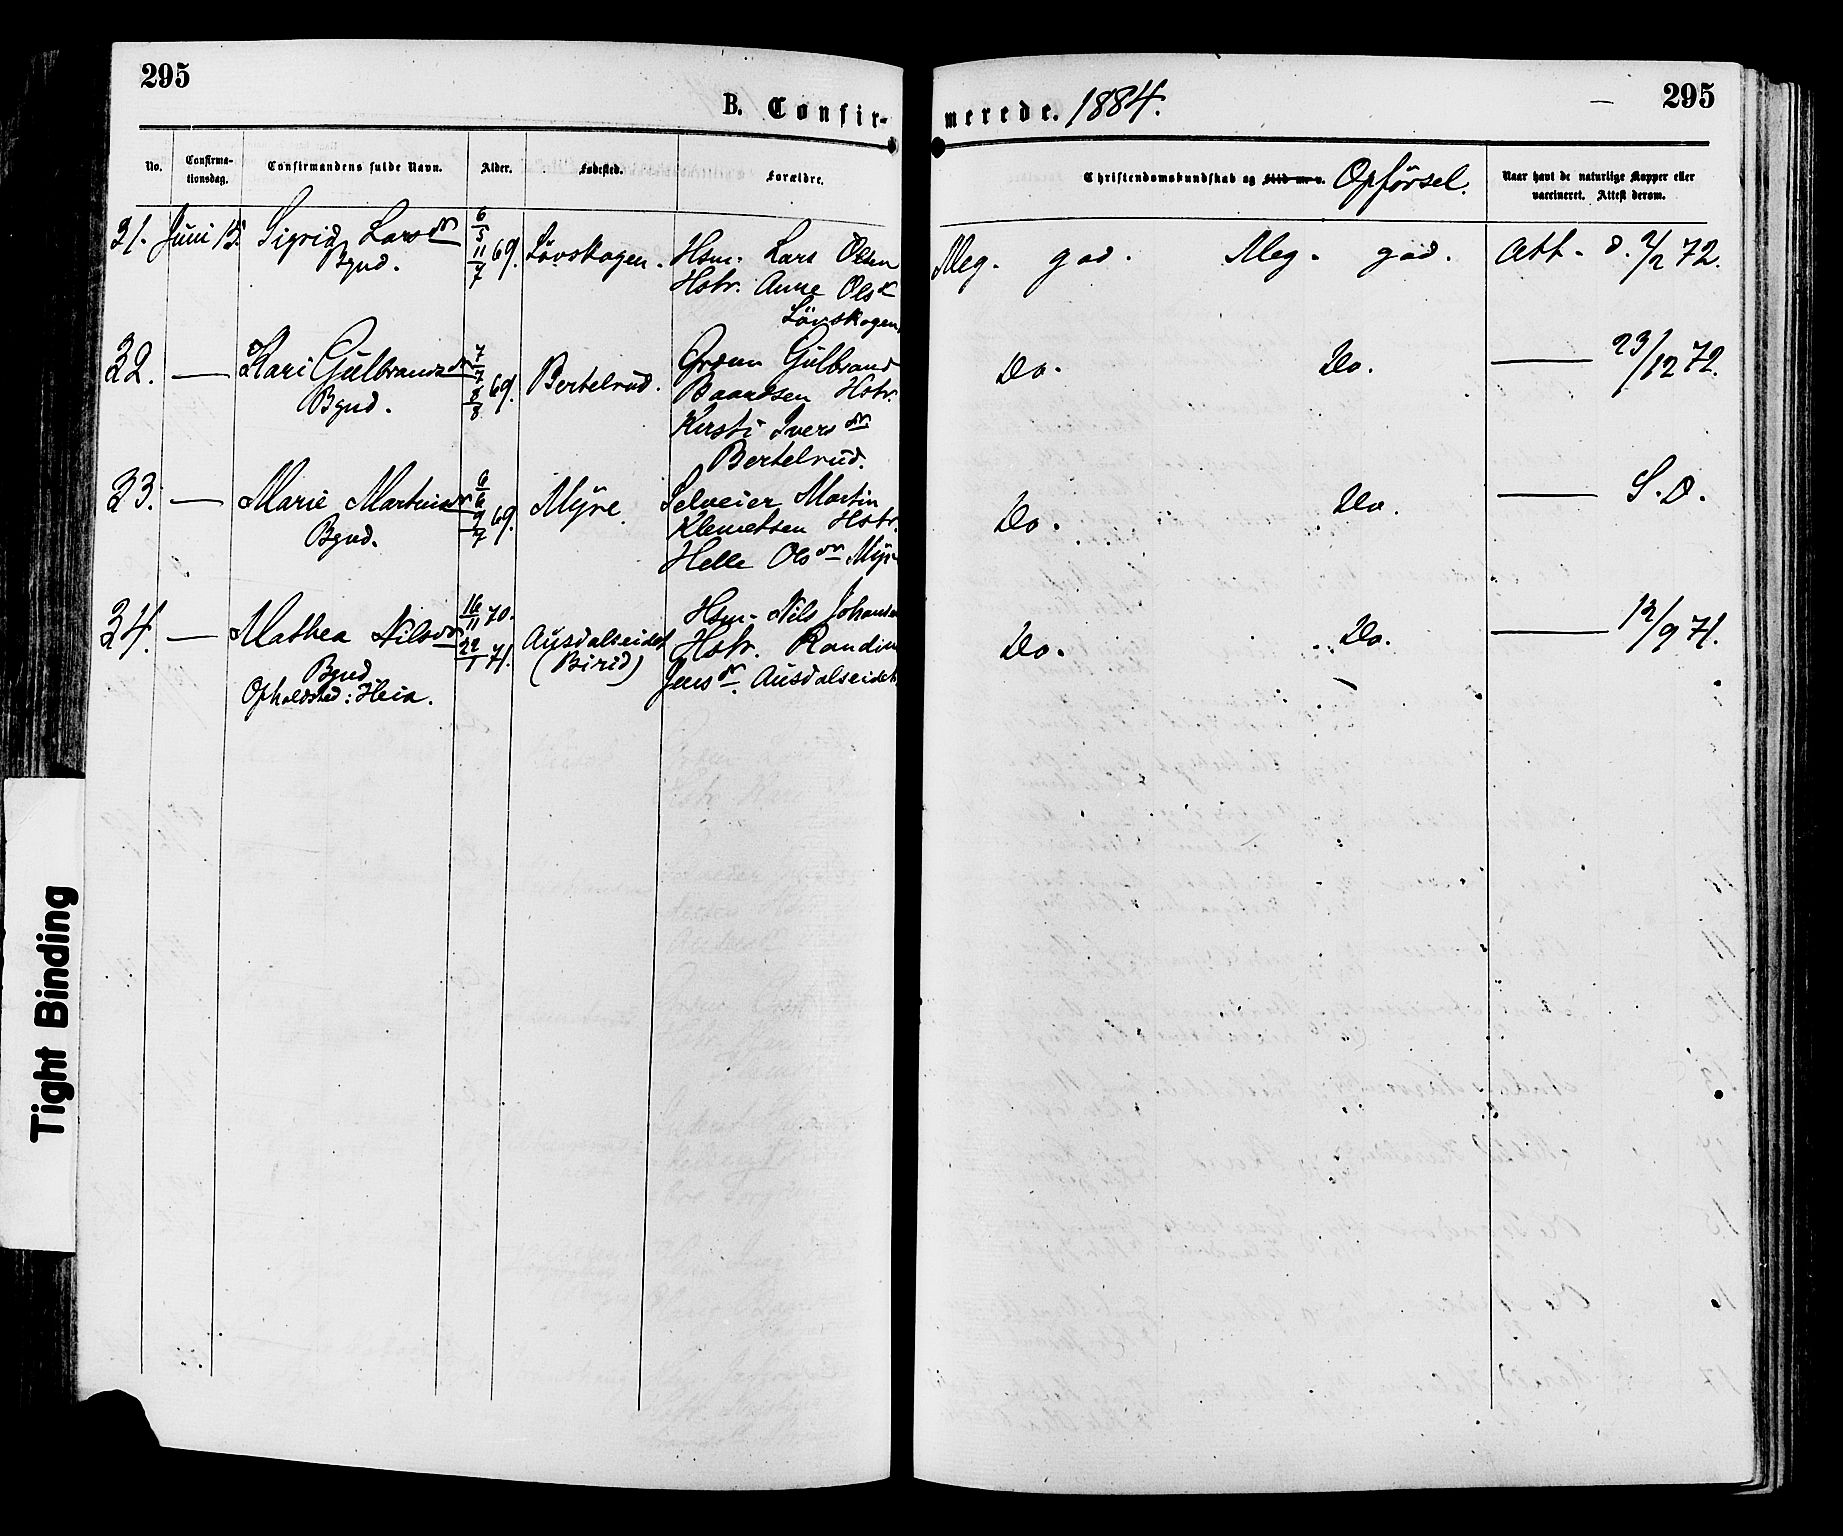 295
295
B. Confir-
merede. 1884.
No.
Confirma-
tionsdag.
Confirmandens fulde Navn.
Alder.
Fødested.
Forældre.
Christendomskundskab og Flid m. v. Opførsel.
Naar havt de naturlige Kopper eller
vaccineret. Attest derom.
31. Juni 15. Sigrid Larsdr
Bgnd.
6/5
11/7 69. Lövskogen. Hsm. Lars Olsen
Hstr. Anne Olsdr
Lövskogen.
Meg. god. Meg. god. Att. d. 2/2 72.
32. — Kari Gulbrandsdr
Bgnd.
7/7
8/8 69. Bertelrud. Grdmn Gulbrand
Baardsen Hstr.
Kirsti Iversdr
Bertelrud.
Do. Do. — 23/12 72.
33. — Marie Martinsdr
Bgnd.
6/6
9/7 69. Myre. Selveier Martin
Klemetsen Hstr.
Helle Olsdr Myre
Do. Do. — S. D.
34. — Mathea Nilsdr
Bgnd
Opholdsted: Heia.
16/11 70.
22/1 71. Ausdalseidet
(Birid)
Hsm. Nils Johansen
Hstr. Randine
Jensdr. Ausdalseidet.
Do. Do. — 12/9 71.
Tight Binding